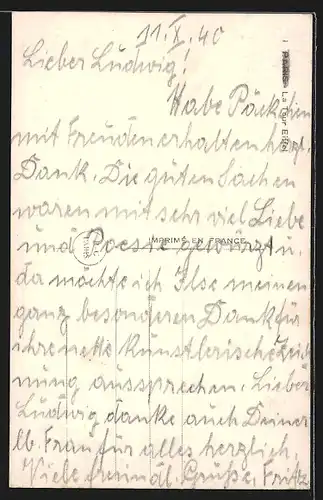 11.X.40
Lieber Ludwig!
Habe Päckchen
mit Freuden erhalten herzl.
Dank. Die guten Sachen
waren mit sehr viel Liebe
und Poesie gewürzt u.
da möchte ich Ilse meinen
ganz besonderen Dank für
ihre nette künstlerische Zeich
nung aussprechen. Lieber
Ludwig danke auch Deiner
lb. Frau für alles herzlich.
Viele freundl. Grüße, Fritz
PARIS - La Tour Eiffel
IMPRIMÉ EN FRANCE